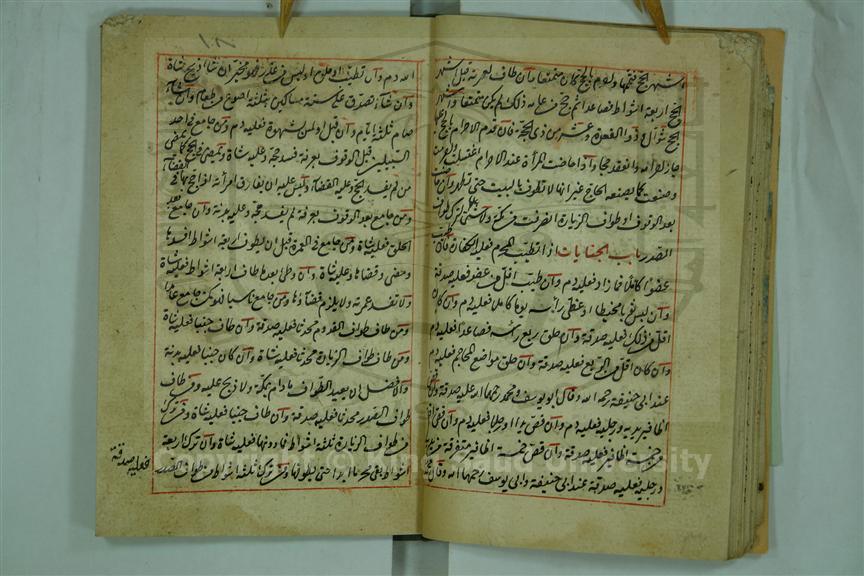 اشهر الحج فتممها واحرم بالحج كان متمتعا وان طاف لعمرته قبل اشهر
الحج اربعة اشواط فصاعدا ثم حج من عامه ذلك لم يكن متمتعا واشهر
الحج شوال وذو القعدة وعشر من ذي الحجة فان قدم الاحرام بالحج عليها
جاز احرامه وانعقد حجا واذا حاضت المرأة عند الاحرام اغتسلت واحرمت
وصنعت كما يصنعه الحاج غير انها لا تطوف بالبيت حتى تطهر وان حاضت
بعد الوقوف وطواف الزيارة انصرفت من مكة ولا شئ عليها لترك طواف
الصدر باب الجنايات اذا تطيب المحرم فعليه الكفارة فان طيب
عضوا كاملا فما زاد فعليه دم وان طيب اقل من عضو فعليه صدقة
وان لبس ثوبا مخيطا او غطى رأسه يوما كاملا فعليه دم وان كان
اقل من ذلك فعليه صدقة وان حلق ربع رأسه فصاعدا فعليه دم
وان كان اقل من الربع فعليه صدقة وان حلق مواضع المحاجم فعليه دم
عند ابي حنيفة رحمه الله وقال ابو يوسف ومحمد رحمهما الله عليه صدقة وان قص
اظافير يديه ورجليه فعليه دم وان قص يدا او رجلا فعليه دم وان قص اقل
من خمسة اظافير فعليه صدقة وان قص خمسة اظافير متفرقة من يديه
ورجليه فعليه صدقة عند ابي حنيفة وابي يوسف رحمهما الله وقال محمد
١٨
الله دم وان تطيب او حلق او لبس من عذر فهو مخير ان شاء ذبح شاة
وان شاء تصدق على ستة مساكين بثلثة اصوع من طعام وان شاء
صام ثلثة ايام وان قبل او لمس بشهوة فعليه دم ومن جامع في احد
السبيلين قبل الوقوف بعرفة فسد حجه وعليه شاة ويمضي في الحج كما يمضي
من لم يفسد الحج وعليه القضاء وليس عليه ان يفارق امرأته اذا حج بها في القضاء
ومن جامع بعد الوقوف بعرفة لم يفسد حجه وعليه بدنة وان جامع بعد
الحلق فعليه شاة ومن جامع في العمرة قبل ان يطوف اربعة اشواط افسدها
ومضى وقضاها وعليه شاة وان وطئ بعد ما طاف اربعة اشواط فعليه شاة
ولا تفسد عمرته ولا يلزم قضاؤها ومن جامع ناسيا كمن جامع عامدا
ومن طاف طواف القدوم محدثا فعليه صدقة وان طاف جنبا فعليه شاة
ومن طاف طواف الزيارة محدثا فعليه شاة وان كان جنبا فعليه بدنة
والافضل ان يعيد الطواف ما دام بمكة ولا ذبح عليه ومن طاف
طواف الصدر محدثا فعليه صدقة وان طاف جنبا فعليه شاة ومن ترك
من طواف الزيارة ثلثة اشواط فما دونها فعليه شاة وان ترك اربعة
اشواط بقي محرما ابدا حتى يطوفها ومن ترك ثلثة اشواط من طواف الصدر
فعليه صدقة
Copyright © King Saud University